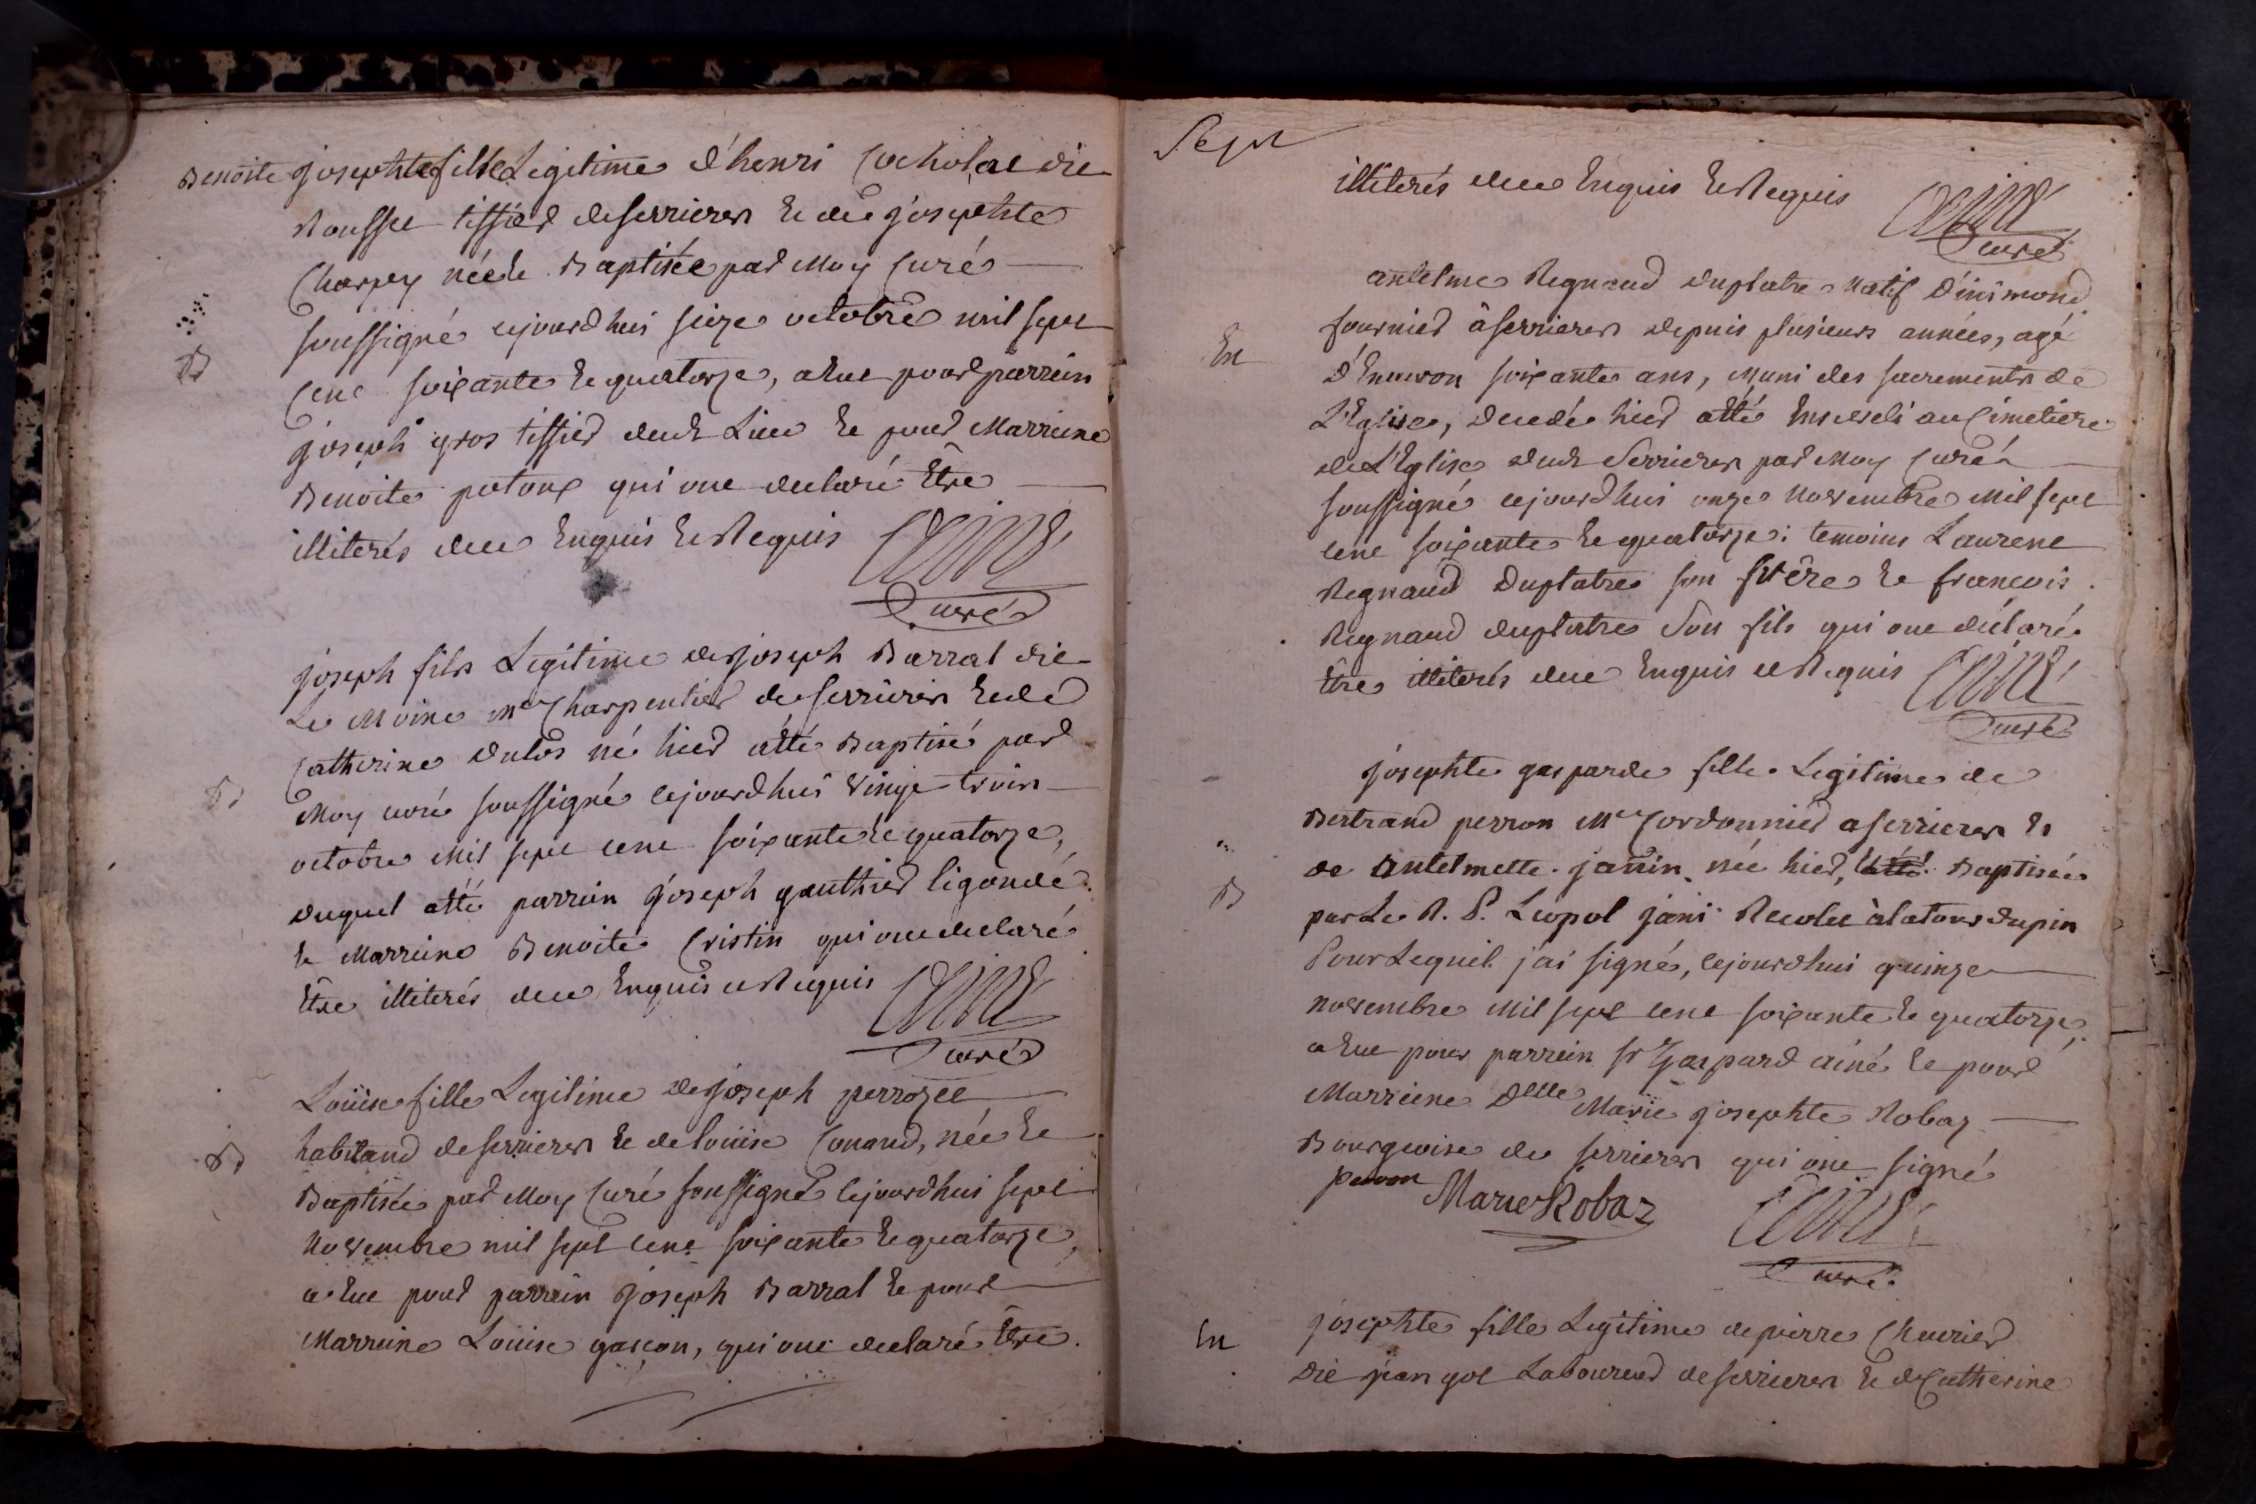 Benoite josephte fille Legitime d'henri Cocholat dit
Rousset tissier de serrieres et de josephte
Charpey née et Baptisée par Moy Curé
soussigné cejourdhui seize octobre mil sept
cent soixante et quatorze, a eut pour parrein
joseph gros tissier dudt Lieu et pour Marreine
Benoite potoux qui ont declaré Etre
illiterés de ce Enquis et Requis
Curé
B
joseph fils Legitime de joseph Barral dit
Le Moine me Charpentier de serrieres et de
Catherine Dulos né hier a été Baptisé par
Moy curé soussigné cejourdhui vingt trois
octobre mil sept cent soixante et quatorze,
duquel a été parrein joseph gauthier ligondé
et Marreine Benoite Cristin qui ont declaré
Etre illiterés de ce Enquis et Requis
Curé
B
Loüise fille Legitime de joseph perrozet
habitand de serrieres et de loüise Conand, née et
Baptisée par Moy Curé soussigné cejourdhui sept
Novembre mil sept cent soixante et quatorze,
a eut pour parrein joseph Barral et pour
Marreine Loüise gascon, qui ont declaré Etre
B
Sept
illiterés de ce Enquis et Requis
Curé
antelme Regnaud duplatre Natif d'inimond
fournier à serrieres depuis plusieurs années, agé
d'Environ soixante ans, Muni des sacrements de
L'Eglise, decedé hier a été Enseveli au Cimetiere
de L'Eglise dudt Serrieres par Moy Curé
soussigné cejourdhui onze Novembre Mil sept
cent soixante et quatorze: temoins Laurent
Regnaud duplatre son frêre et francois
Regnaud duplatre Son fils qui ont declaré
Etre illiterés de ce Enquis et Requis
Curé
En
josephte gasparde fille Legitime de
Bertrand perron Me Cordonnier a serrieres et
de antelmette janin née hier, Baptisée
par Le R. P. Leopol jani Recolet à la tour dupin
Pour Lequel j'ai signé, cejourdhui quinze
Novembre Mil sept cent soixante et quatorze,
a eut pour parrein sr Gaspard ainé et pour
Marreine Delle Marie josephte Robaz
Bourgeoise de serrieres qui ont signé
perron Marie Robaz
Curé
B
josephte fille Legitime de pierre Charier
dit jean gol Laboureur de serrieres et de Catherine
En